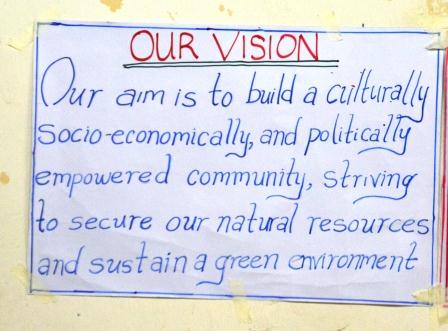 OUR VISION
Our aim is to build a culturally
socio-economically, and politically
empowered community, striving
to secure our natural resources
and sustain a green environment